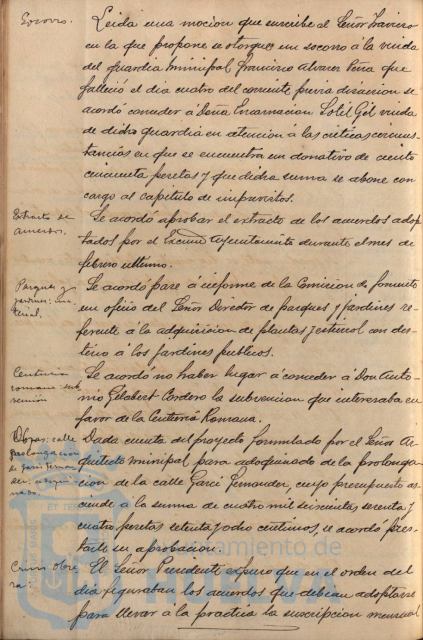 Socorro.
Leida una mocion que suscribe el Señor Traviero
en la que propone se otorgue un socorro á la viuda
del guardia municipal Francisco Alvarez Peña que
falleció el dia cuatro del corriente previa discusion se
acordó conceder á Doña Encarnacion Sotil Gil viuda
de dicho guardia en atencion á las criticas circuns-
tancias en que se encuentra un donativo de ciento
cincuenta pesetas y que dicha suma se abone con
cargo al Capitulo de imprevistos.
Extracto de
acuerdos.
Se acordó aprobar el extracto de los acuerdos adop-
tados por el Excmo Ayuntamiento durante el mes de
febrero ultimo.
Parques y
jardines: ma-
terial.
Se acordó pase á informe de la Comision de fomento
un oficio del Señor Director de parques y jardines re-
ferente á la adquisicion de plantas y estiercol con des-
tino á los jardines publicos.
Centuria
romana sub-
vención
Se acordó no haber lugar á conceder á Don Anto-
nio Gilabert Cordero la subvencion que interesaba en
favor de la Centuria Romana.
Obras: calle
prolongacion
de Garci Fernan-
dez:
Dada cuenta del proyecto formulado por el Señor Ar-
quitecto municipal para adoquinado de la prolonga-
cion de la calle Garci Fernandez, cuyo presupuesto as-
ciende á la suma de cuatro mil seiscientas setenta y
cuatro pesetas setenta y ocho centimos, se acordó pres-
tarle su aprobacion.
Crisis obre-
ra.
El Señor Presidente expuso que en el orden del
dia figuraban los acuerdos que debian adoptarse
para llevar á la practica la suscripcion mensual
ayuntamiento de